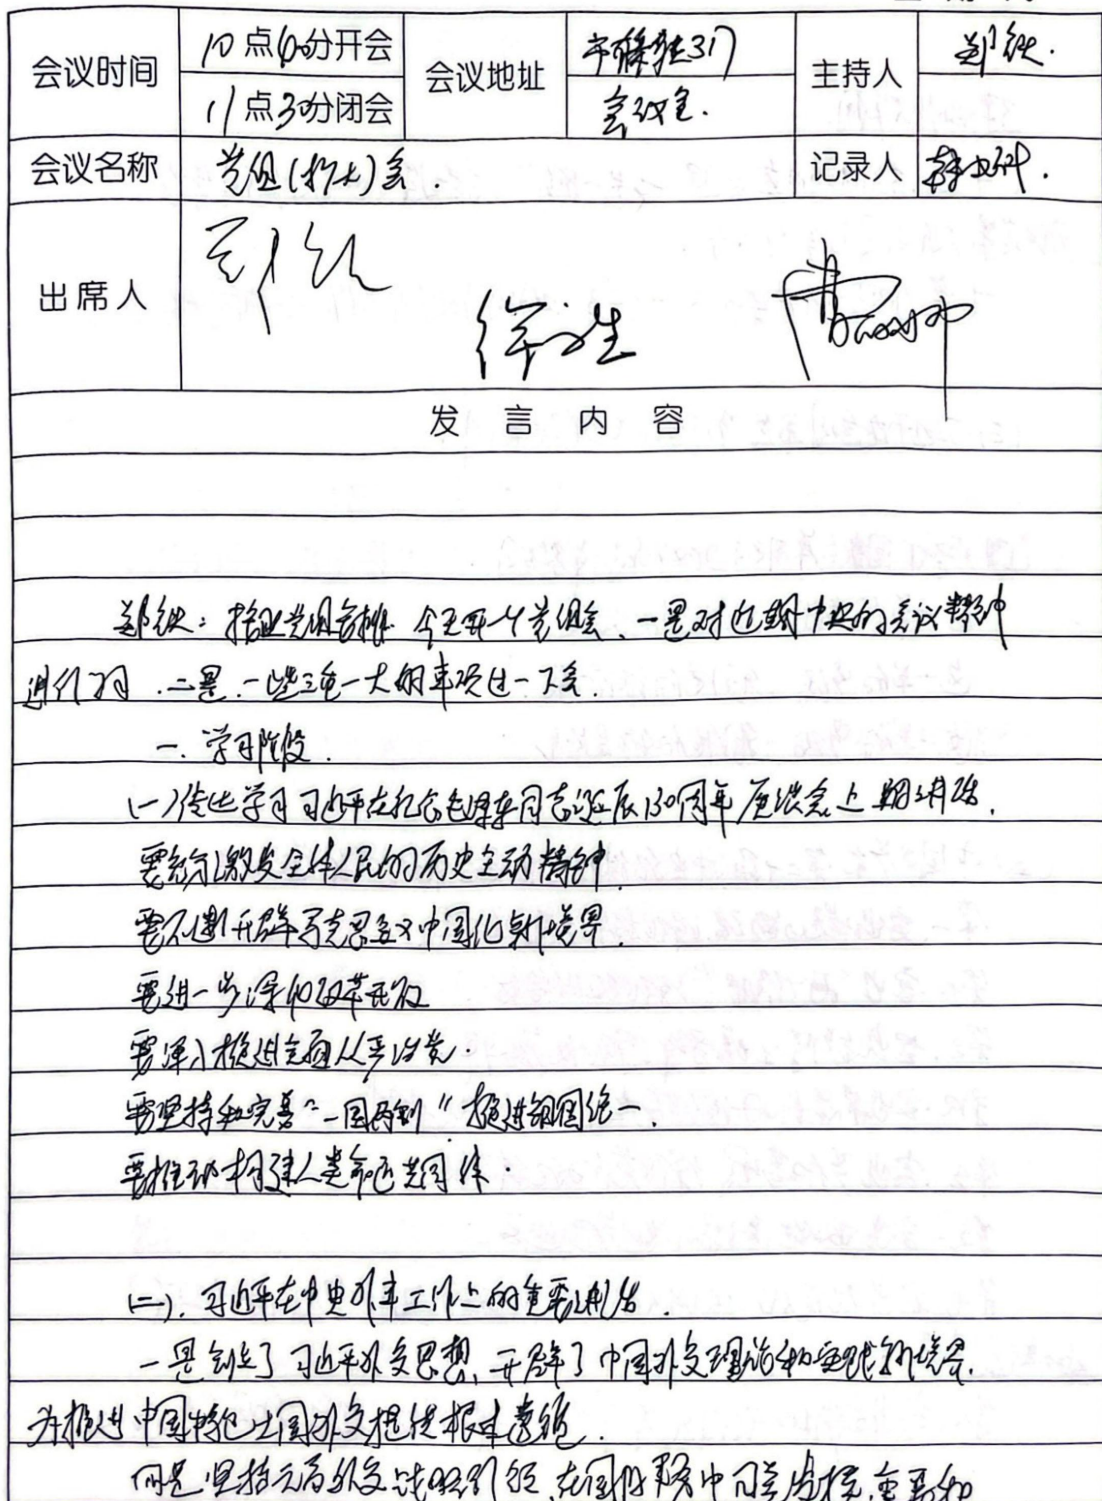 会议时间 10点00分开会 会议地址 317 主持人 郑钦.
11点30分闭会 会议室.
会议名称 党组(扩大)会. 记录人
出席人 郑钦
发言内容
郑钦: 党组安排 今天开个党组会、一是对近期中央的会议精神
进行学习.二是.一些三重一大的事项过一下会.
一.学习阶段.
(一)传达学习习近平在纪念毛泽东同志诞辰130周年座谈会上的讲话.
要充分激发全体人民的历史主动精神.
要不断开辟马克思主义中国化新境界.
要进一步深化改革开放
要深入推进全面从严治党.
要坚持和完善"一国两制"推进祖国统一.
要推动构建人类命运共同体.
(二).习近平在中央外事工作上的重要讲话.
一是创立了习近平外交思想,开辟了中国外交理论和实践新境界.
为推进中国特色大国外交提供根本遵循.
坚持元首外交战略引领,在国际事务中 发挥重要和